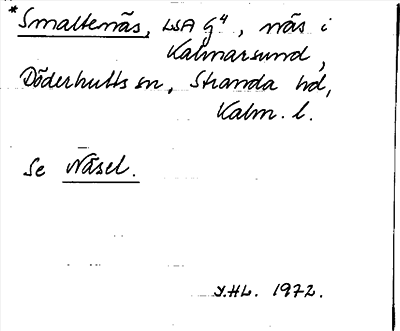 *Smaltenäs, LSA G4, näs i
Kalmarsund,
Döderhults sn, Stranda hd,
Kalm. l.
Se Näsel.
Y.HL. 1972.